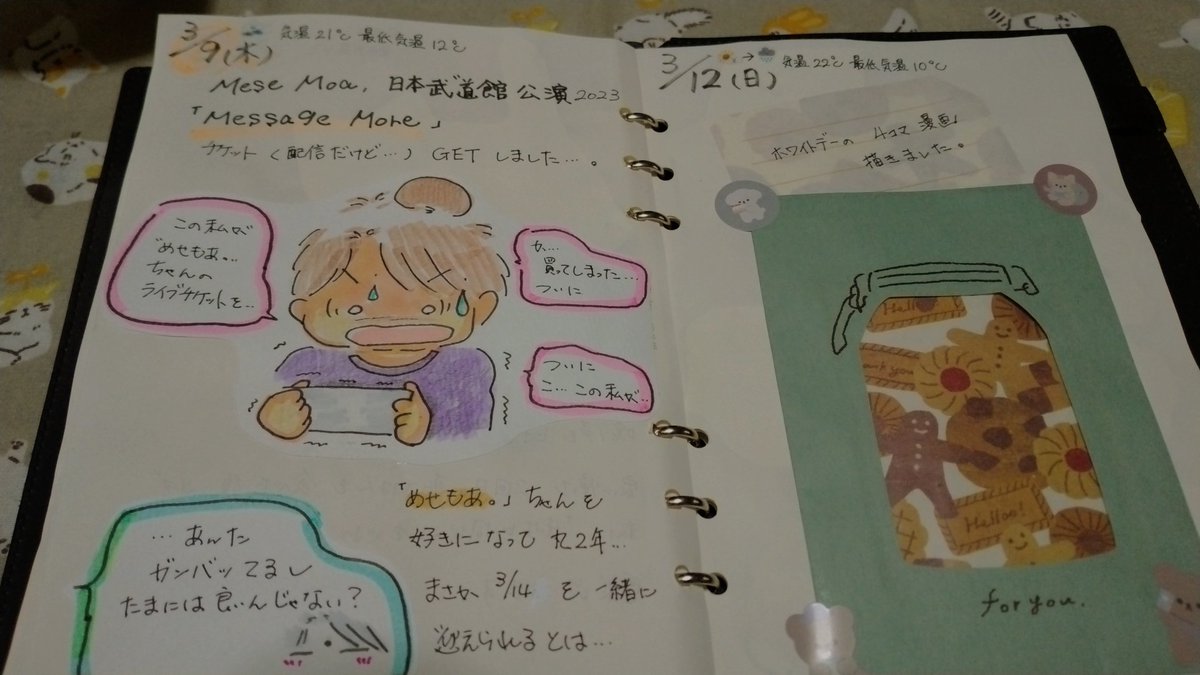 3/9(木) 気温21℃ 最低気温12℃
Mese Moa. 日本武道館公演2023
「Message More」
チケット(配信だけど…)GETしました…。
この私が
"めせもあ。"
ちゃんの
ライブチケットを…
か…
買ってしまった…
ついに
ついに
こ…この私が…
「めせもあ。」ちゃんを
好きになって丸2年…
まさか3/14を一緒に
迎えられるとは…
…あんた
ガンバッてるし
たまには良いんじゃない?
3/12(日) → 気温22℃ 最低気温10℃
ホワイトデーの4コマ漫画
描きました。
Hello!
Thank you
Helloo!
for you.